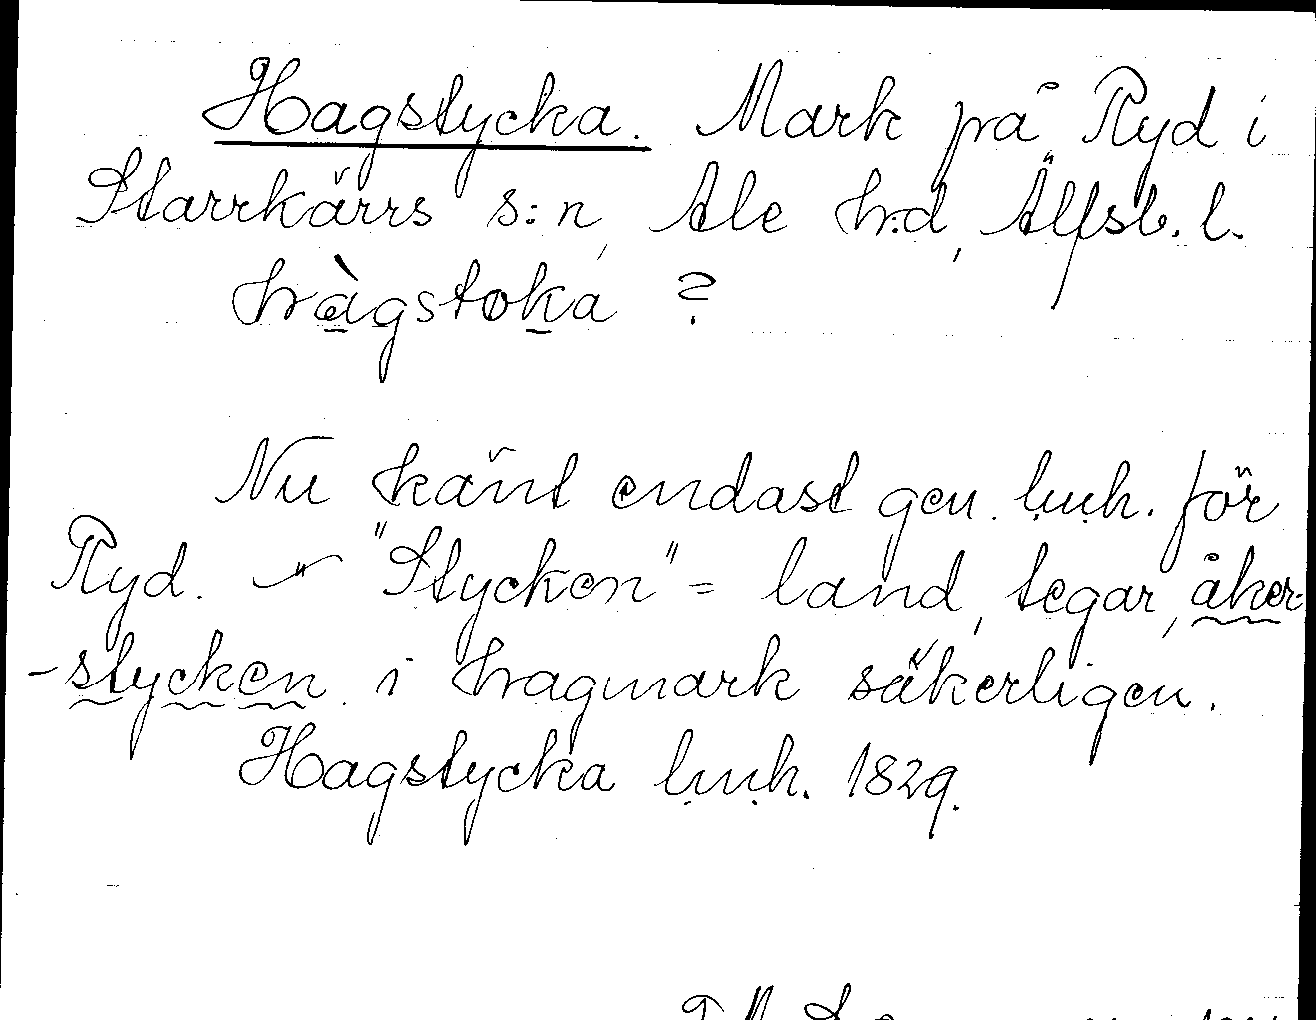 Hagstycka. Mark på Ryd i
Starrkärrs s:n, Ale h:d, Älfsb. l.
hàgstoka ?
Nu känt endast gen. l.u.h. för
Ryd. – "Stycken" = land, tegar, åker-
-stycken i hagmark säkerligen.
Hagstycka l.u.h. 1829.